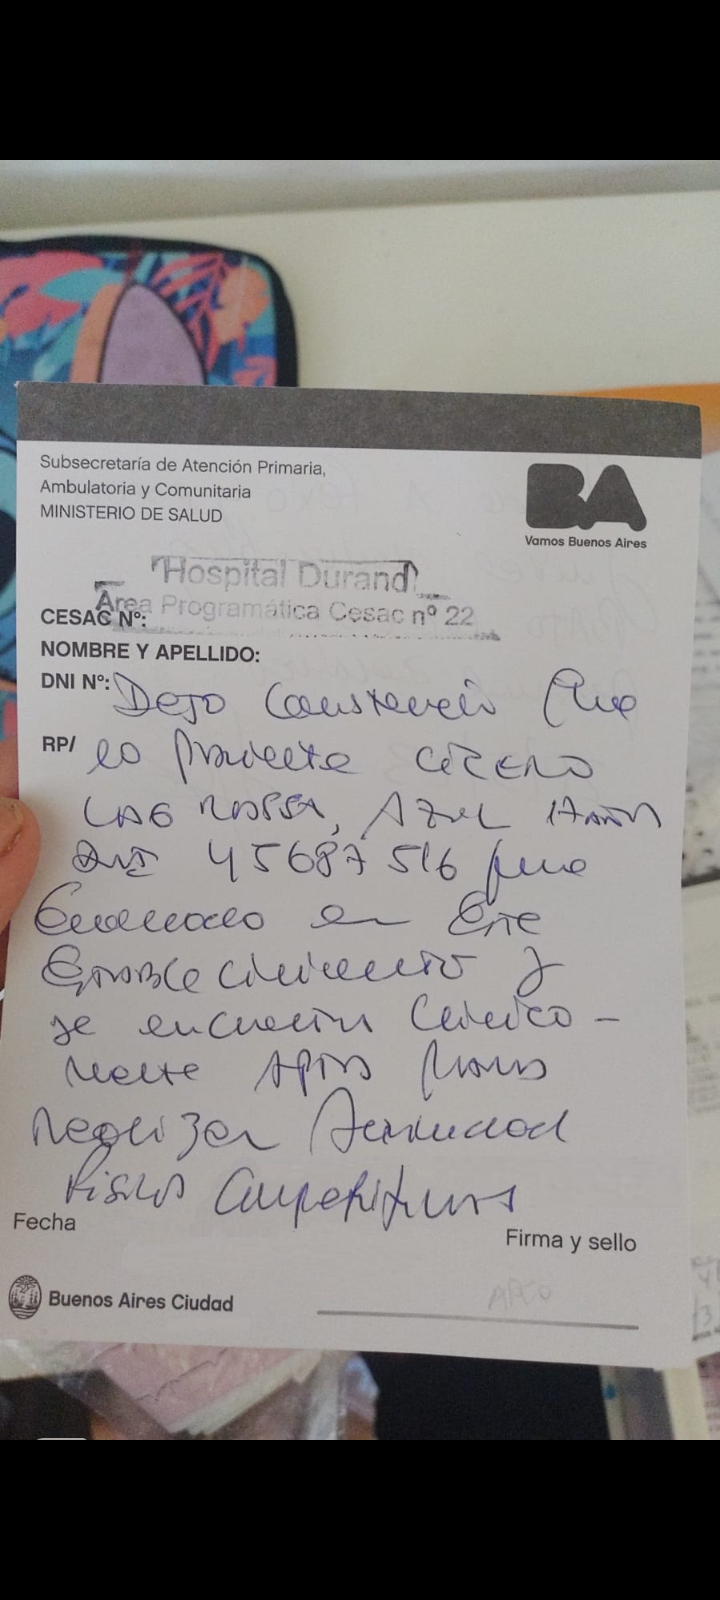 Subsecretaría de Atención Primaria,
Ambulatoria y Comunitaria
MINISTERIO DE SALUD
BA
Vamos Buenos Aires
"Hospital Durand"
Área Programática Cesac nº 22
CESAC Nº:
NOMBRE Y APELLIDO:
DNI Nº: Dejo Constancia Que
RP/ la paciente CICERO
, AZUL 17 años
DNI 45687516 fue
Evaluada en Este
Establecimiento y
se encuentra Clínica-
mente apta para
Realizar Actividad
Física Competitiva
Fecha
Firma y sello
Buenos Aires Ciudad